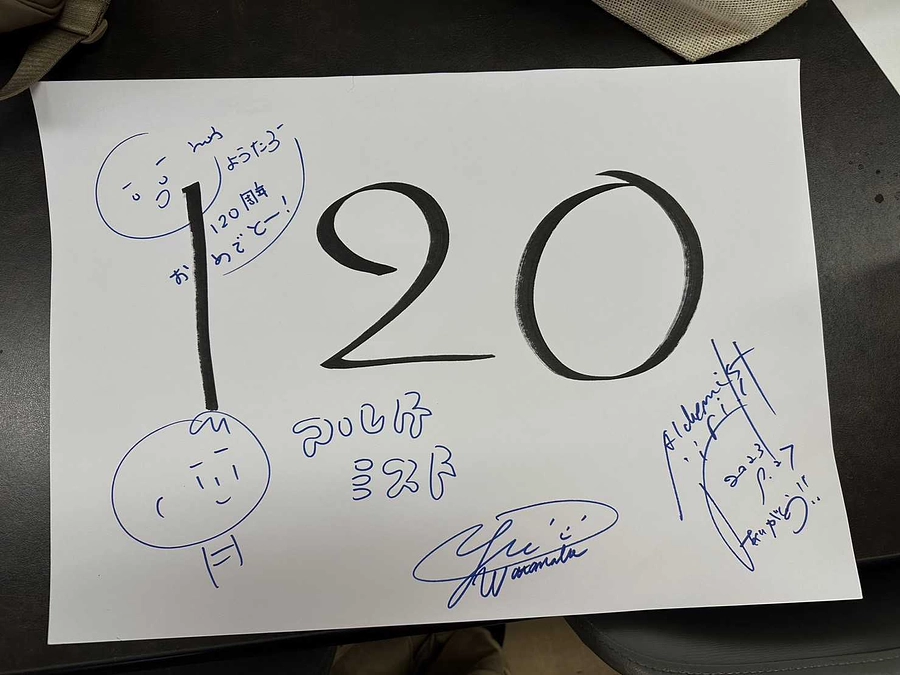 ようたろー
120周年
おめでとー!
120
アルケ
ミスト
Yui
Wakamatsu
Alchemist
2023
ありがとう!!